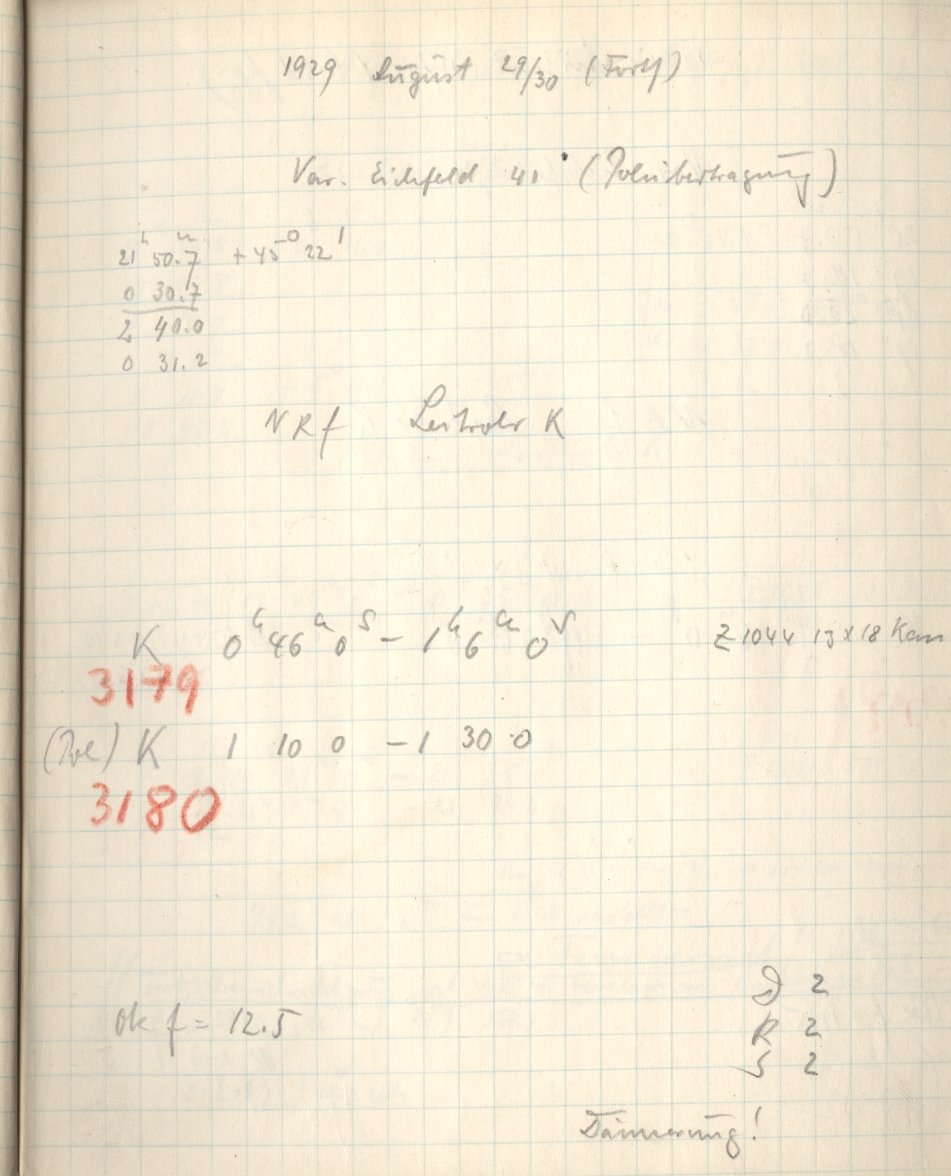 1929 August 29/30 (Forts)
Var. Eichfeld 41 (Polübertragung)
21ʰ 50.7ᵐ + 45° 22'
0 30.7
2 40.0
0 31.2
NRf Leitrohr K
K 0ʰ 46ᵐ 0ˢ – 1ʰ 6ᵐ 0ˢ Z 1044 13 x 18 Kam
3179
(Pol) K 1 10 0 – 1 30 0
3180
Ok f = 12.5
D 2
R 2
S 2
Dämmerung!